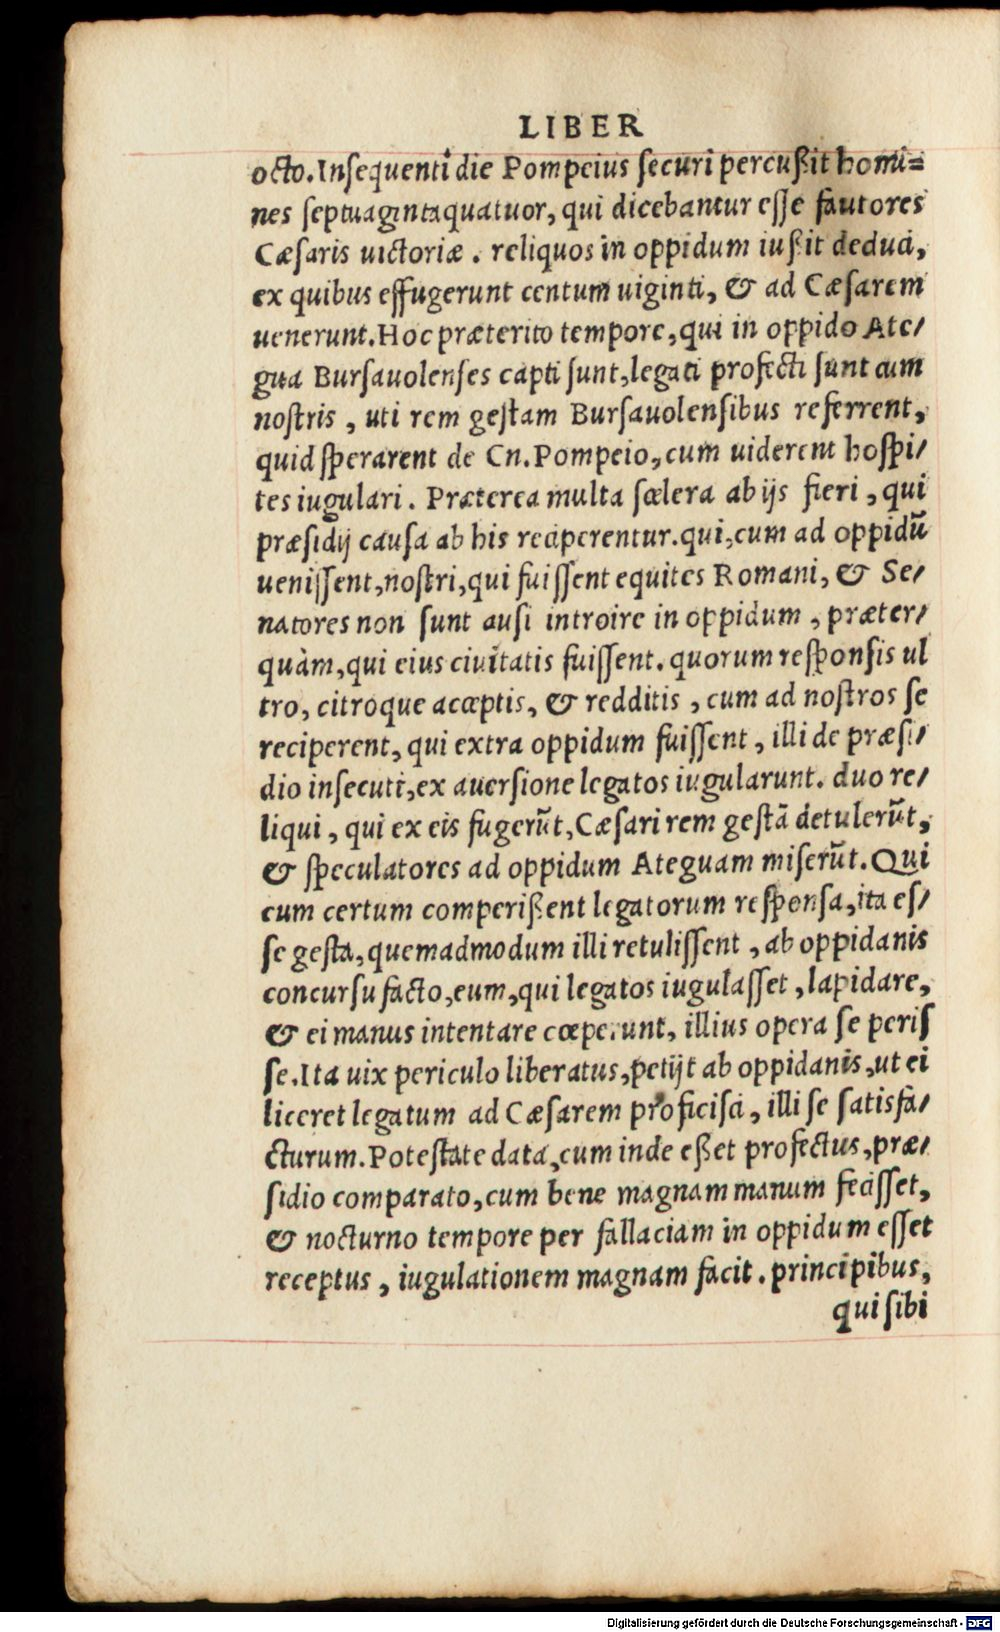 LIBER
octo. Insequenti die Pompeius securi percußit homi=
nes septuagintaquatuor, qui dicebantur esse fautores
Cæsaris uictoriæ. reliquos in oppidum iußit deduci,
ex quibus effugerunt centum uiginti, & ad Cæsarem
uenerunt. Hoc præterito tempore, qui in oppido Ate/
gua Bursauolenses capti sunt, legati profecti sunt cum
nostris, uti rem gestam Bursauolensibus referrent,
quid sperarent de Cn. Pompeio, cum uiderent hospi/
tes iugulari. Præterea multa scelera ab ijs fieri, qui
præsidij causa ab his reciperentur. qui, cum ad oppidũ
uenissent, nostri, qui fuissent equites Romani, & Se/
natores non sunt ausi introire in oppidum, præter/
quàm, qui eius ciuitatis fuissent. quorum responsis ul
tro, citroque acceptis, & redditis, cum ad nostros se
reciperent, qui extra oppidum fuissent, illi de præsi/
dio insecuti, ex auersione legatos iugularunt. duo re/
liqui, qui ex eis fugerũt, Cæsari rem gestã detulerũt,
& speculatores ad oppidum Ateguam miserũt. Qui
cum certum comperißent legatorum responsa, ita es/
se gesta, quemadmodum illi retulissent, ab oppidanis
concursu facto, eum, qui legatos iugulasset, lapidare,
& ei manus intentare cœperunt, illius opera se peris
se. Ita uix periculo liberatus, petijt ab oppidanis, ut ei
liceret legatum ad Cæsarem proficisci, illi se satisfa/
cturum. Potestate data, cum inde eßet profectus, præ/
sidio comparato, cum bene magnam manum fecisset,
& nocturno tempore per fallaciam in oppidum esset
receptus, iugulationem magnam facit. principibus,
qui sibi
Digitalisierung gefördert durch die Deutsche Forschungsgemeinschaft - DFG